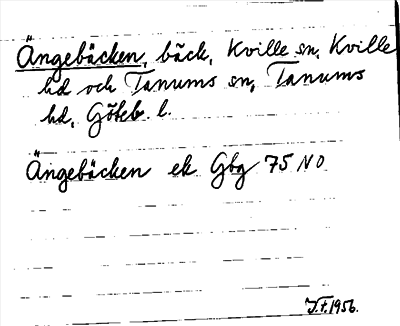 Ängebäcken, bäck, Kville sn, Kville
hd och Tanums sn, Tanums
hd, Göteb. l.
Ängebäcken ek Gbg 75 NO
J.t. 1956.